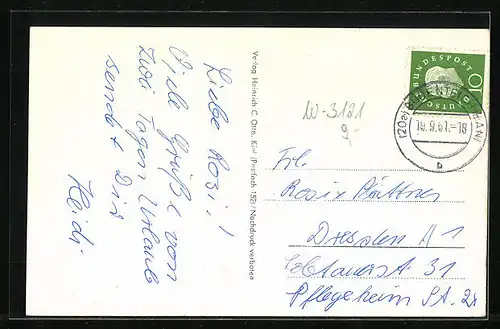 Liebe Rosi!
Viele Grüße von
zwei Tagen Urlaub
sendet Dir
Heidi
Verlag Heinrich C. Otto, Kiel (Postfach 152) / Nachdruck verboten
W-3181
DEUTSCHE BUNDESPOST
10
(20a)
19.9.61.-18
b
Frl.
Dresden A 1
31
Pflegeheim St. 2